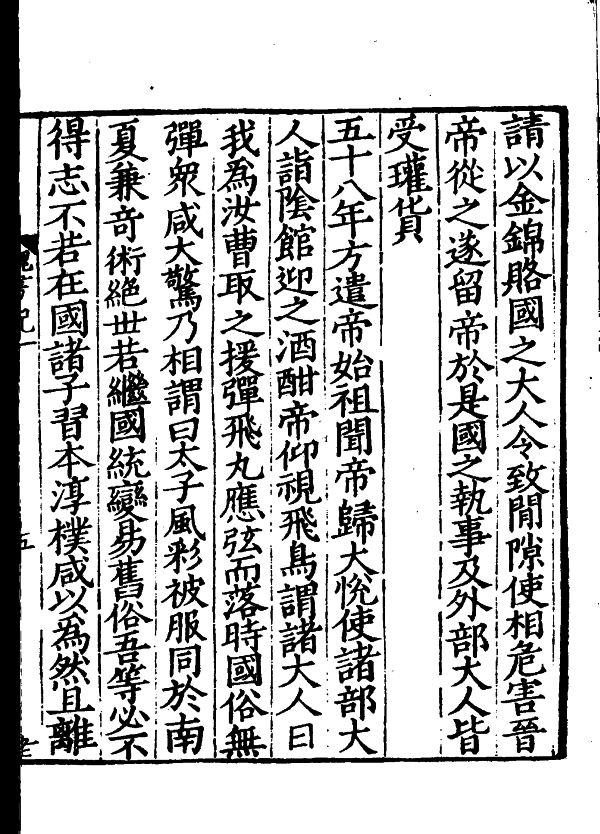 請以金錦賂國之大人令致閒隙使相危害晉
帝從之遂留帝於是國之執事及外部大人皆
受瓘貨
五十八年方遣帝始祖聞帝歸大悅使諸部大
人詣陰館迎之酒酣帝仰視飛鳥謂諸大人曰
我為汝曹取之援彈飛丸應弦而落時國俗無
彈衆咸大驚乃相謂曰太子風彩被服同於南
夏兼奇術絕世若繼國統變易舊俗吾等必不
得志不若在國諸子習本淳樸咸以為然且離
魏書紀一
五